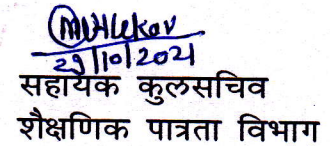 29/10/2021
सहायक कुलसचिव
शैक्षणिक पात्रता विभाग